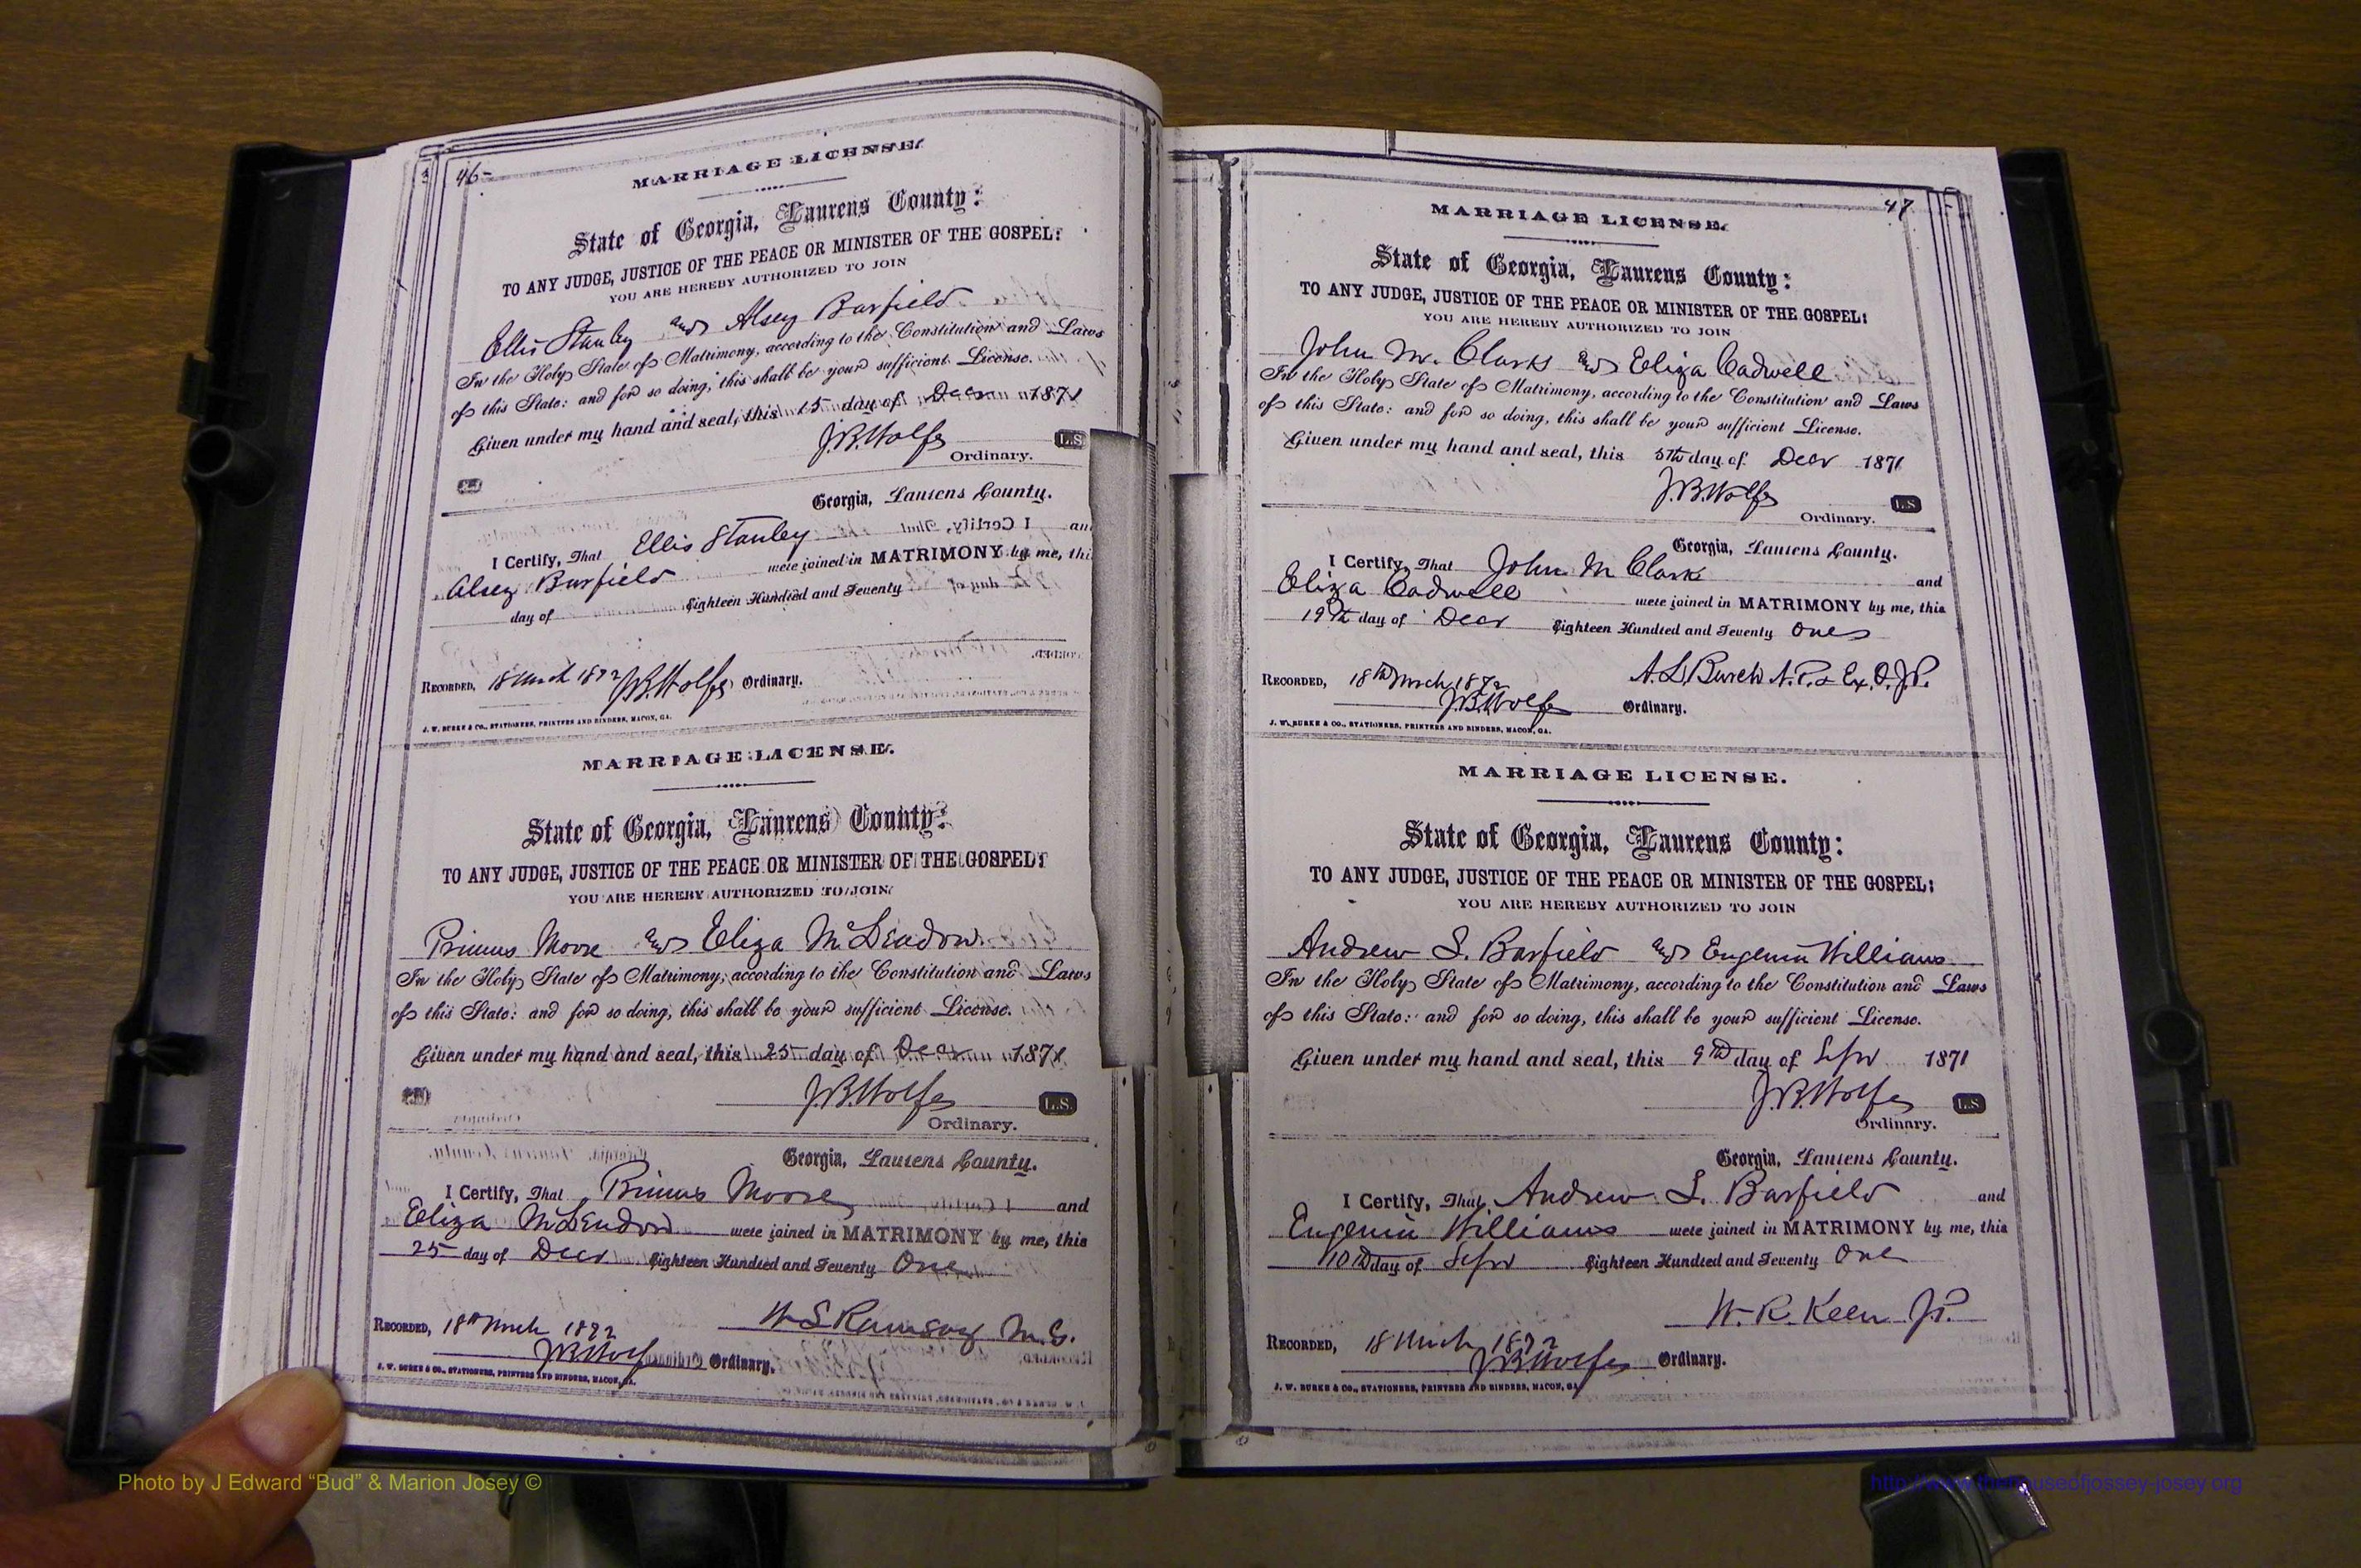 46
MARRIAGE LICENSE.
State of Georgia, Laurens County:
TO ANY JUDGE, JUSTICE OF THE PEACE OR MINISTER OF THE GOSPEL:
YOU ARE HEREBY AUTHORIZED TO JOIN
Ellis Stanley and Alsey Barfield
In the Holy State of Matrimony, according to the Constitution and Laws
of this State: and for so doing, this shall be your sufficient License.
Given under my hand and seal, this 15 day of Decr 1871
J.B. Wolfe L.S.
Ordinary.
Georgia, Laurens County.
I Certify, That Ellis Stanley an
Alsey Barfield were joined in MATRIMONY by me, thi
day of Eighteen Hundred and Seventy
RECORDED, 18 March 1872 J.B. Wolfe Ordinary.
J. W. BURKE & CO., STATIONERS, PRINTERS AND BINDERS, MACON, GA.
MARRIAGE LICENSE.
State of Georgia, Laurens County:
TO ANY JUDGE, JUSTICE OF THE PEACE OR MINISTER OF THE GOSPEL:
YOU ARE HEREBY AUTHORIZED TO JOIN
Primus Moore and Eliza McLendon
In the Holy State of Matrimony, according to the Constitution and Laws
of this State: and for so doing, this shall be your sufficient License.
Given under my hand and seal, this 25 day of Decr 1871
J.B. Wolfe L.S.
Ordinary.
Georgia, Laurens County.
I Certify, That Primus Moore and
Eliza McLendon were joined in MATRIMONY by me, this
25 day of Decr Eighteen Hundred and Seventy One
W S Ramsay M.G.
RECORDED, 18th March 1872
J.B. Wolfe Ordinary.
J. W. BURKE & CO., STATIONERS, PRINTERS AND BINDERS, MACON, GA.
47
MARRIAGE LICENSE.
State of Georgia, Laurens County:
TO ANY JUDGE, JUSTICE OF THE PEACE OR MINISTER OF THE GOSPEL:
YOU ARE HEREBY AUTHORIZED TO JOIN
John M. Clark and Eliza Cadwell
In the Holy State of Matrimony, according to the Constitution and Laws
of this State: and for so doing, this shall be your sufficient License.
Given under my hand and seal, this 5th day of Decr 1871
J.B. Wolfe L.S.
Ordinary.
Georgia, Laurens County.
I Certify, That John M Clark and
Eliza Cadwell were joined in MATRIMONY by me, this
19th day of Decr Eighteen Hundred and Seventy One
A. L. Burch N.P. & Ex. O. J.P.
RECORDED, 18th March 1872
J.B. Wolfe Ordinary.
J. W. BURKE & CO., STATIONERS, PRINTERS AND BINDERS, MACON, GA.
MARRIAGE LICENSE.
State of Georgia, Laurens County:
TO ANY JUDGE, JUSTICE OF THE PEACE OR MINISTER OF THE GOSPEL:
YOU ARE HEREBY AUTHORIZED TO JOIN
Andrew S. Barfield and Eugenia Williams
In the Holy State of Matrimony, according to the Constitution and Laws
of this State: and for so doing, this shall be your sufficient License.
Given under my hand and seal, this 9th day of Sepr 1871
J.B. Wolfe L.S.
Ordinary.
Georgia, Laurens County.
I Certify, That Andrew S. Barfield and
Eugenia Williams were joined in MATRIMONY by me, this
10th day of Sepr Eighteen Hundred and Seventy One
W. R. Keen J.P.
RECORDED, 18 March 1872
J.B. Wolfe Ordinary.
J. W. BURKE & CO., STATIONERS, PRINTERS AND BINDERS, MACON, GA.
Photo by J Edward “Bud” & Marion Josey ©
http://www.thehouseofjossey-josey.org